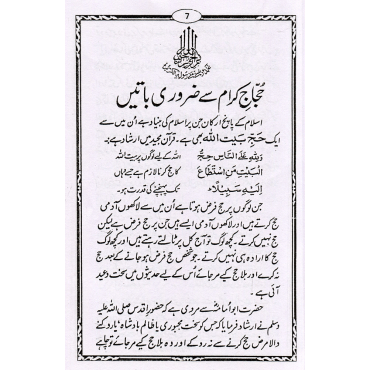 7
حُجّاجِ کرام سے ضروری باتیں
اسلام کے پانچ ارکان جن پر اسلام کی بنیاد ہے اُن میں سے
ایک حجِ بیت اللہ بھی ہے۔ قرآن مجید میں ارشاد ہے:
وَلِلّٰهِ عَلَى النَّاسِ حِجُّ اللہ کے لیے لوگوں پر بیت اللہ
الْبَيْتِ مَنِ اسْتَطَاعَ کا حج کرنا لازم ہے جسے وہاں
اِلَيْهِ سَبِيْلًا ؕ تک پہنچنے کی قدرت ہو۔
جن لوگوں پر حج فرض ہوتا ہے اُن میں سے لاکھوں آدمی
حج کرتے ہیں اور لاکھوں آدمی ایسے ہیں جن پر حج فرض ہے لیکن
حج نہیں کرتے۔ کچھ لوگ تو آج کل پر ٹالتے رہتے ہیں اور کچھ لوگ
حج کا ارادہ ہی نہیں کرتے۔ جو شخص حج فرض ہو جانے کے بعد حج
نہ کرے اور بلا حج کیے مر جائے اُس کے لیے حدیثوں میں سخت وعید
آئی ہے۔
حضرت ابو اُمامہؓ سے مروی ہے کہ حضورِ اقدس صلی اللہ علیہ
وسلم نے ارشاد فرمایا کہ جس کو سخت مجبوری یا ظالم بادشاہ یا روکنے
والا مرض حج کرنے سے نہ روکے اور وہ بلا حج کیے مر جائے تو چاہے